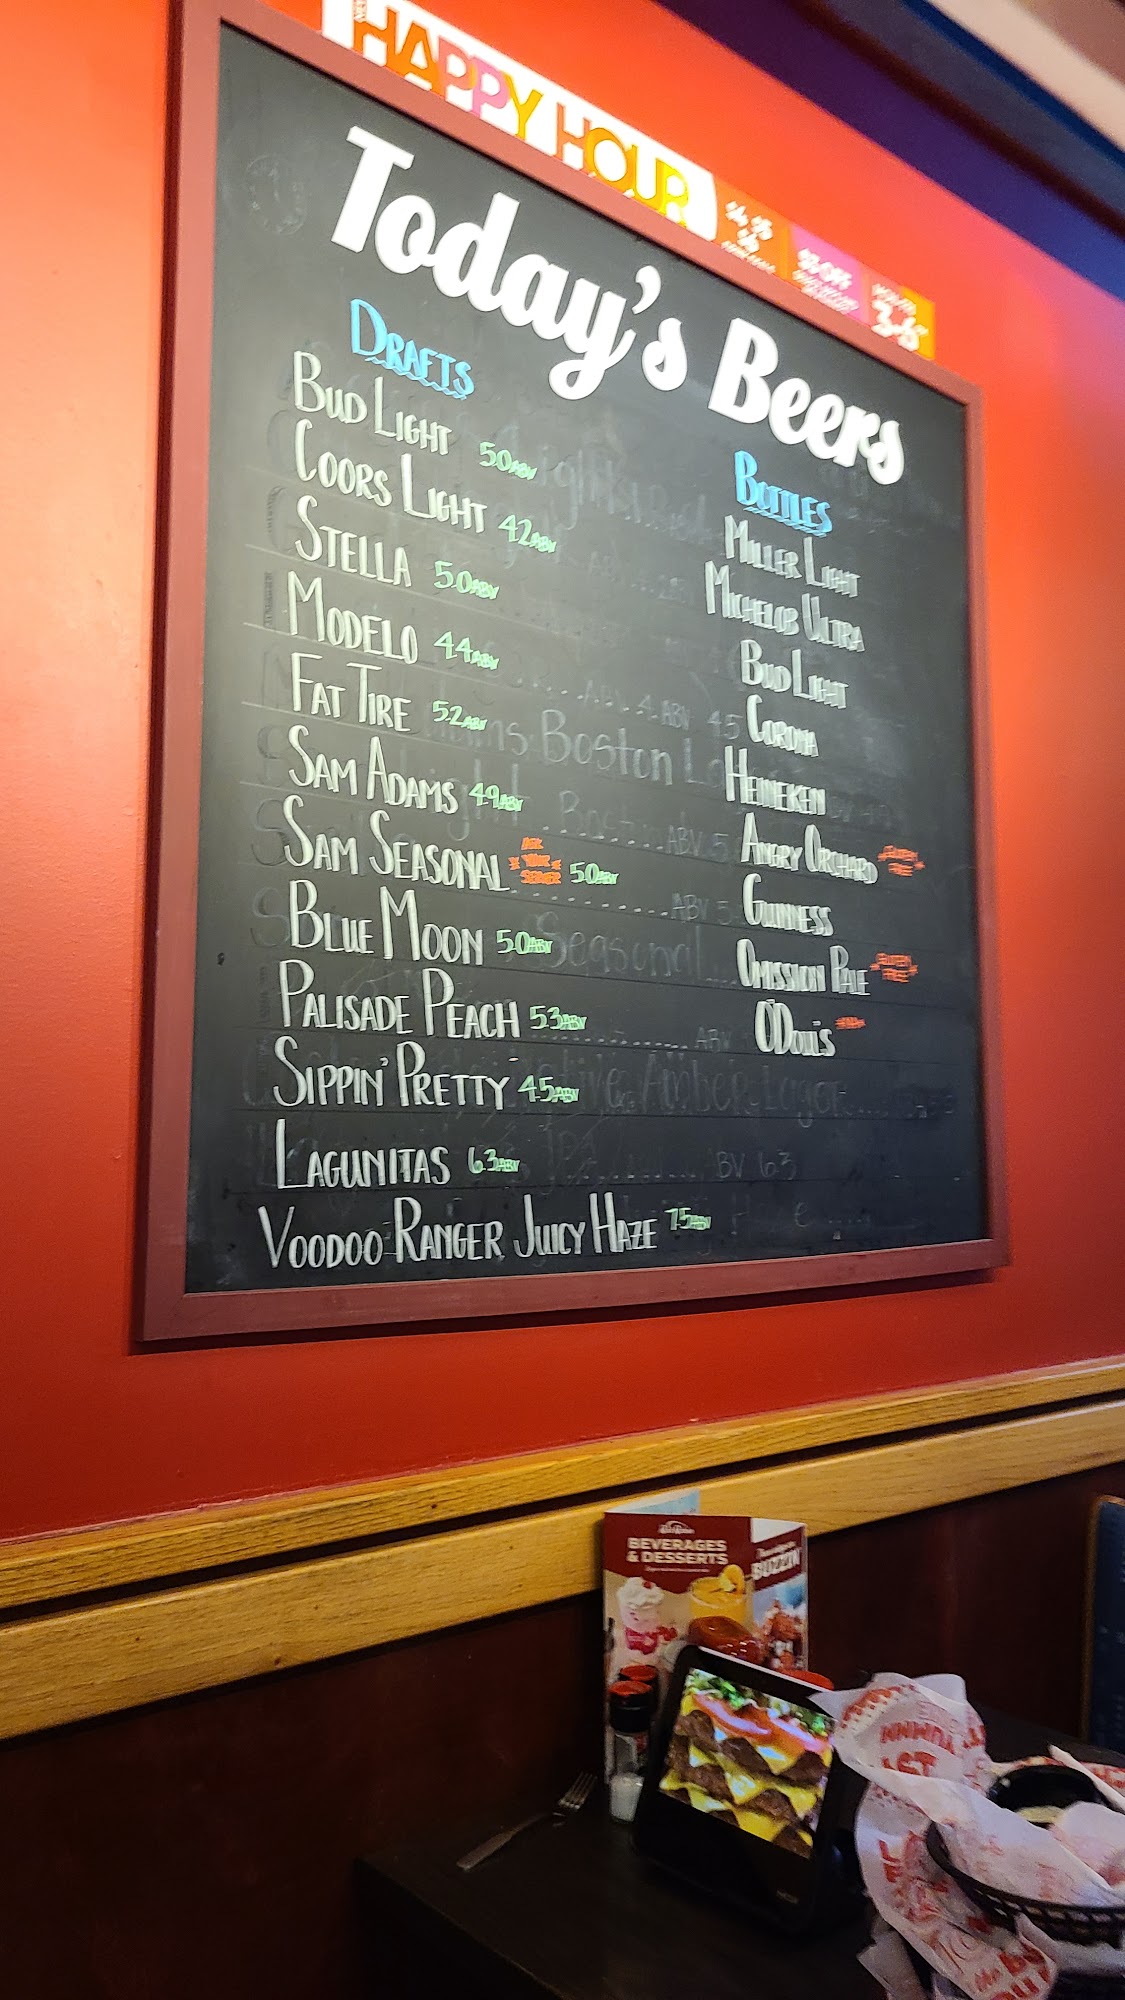 HAPPY HOUR
$4 $5
$6
$3 OFF
MON-FRI
3-6
Today's Beers
DRAFTS
BUD LIGHT 5.0ABV
COORS LIGHT 4.2ABV
STELLA 5.0ABV
MODELO 4.4ABV
FAT TIRE 5.2ABV
SAM ADAMS 4.9ABV
SAM SEASONAL ASK YOUR SERVER 5.0ABV
BLUE MOON 5.0ABV
PALISADE PEACH 5.3ABV
SIPPIN' PRETTY 4.5ABV
LAGUNITAS 6.3ABV
VOODOO RANGER JUICY HAZE 7.5ABV
BOTTLES
MILLER LIGHT
MICHELOB ULTRA
BUD LIGHT
CORONA
HEINEKEN
ANGRY ORCHARD GLUTEN FREE
GUINNESS
OMISSION PALE GLUTEN FREE
O'DOUL'S
BEVERAGES
& DESSERTS
BUZZIN'
YUMMM